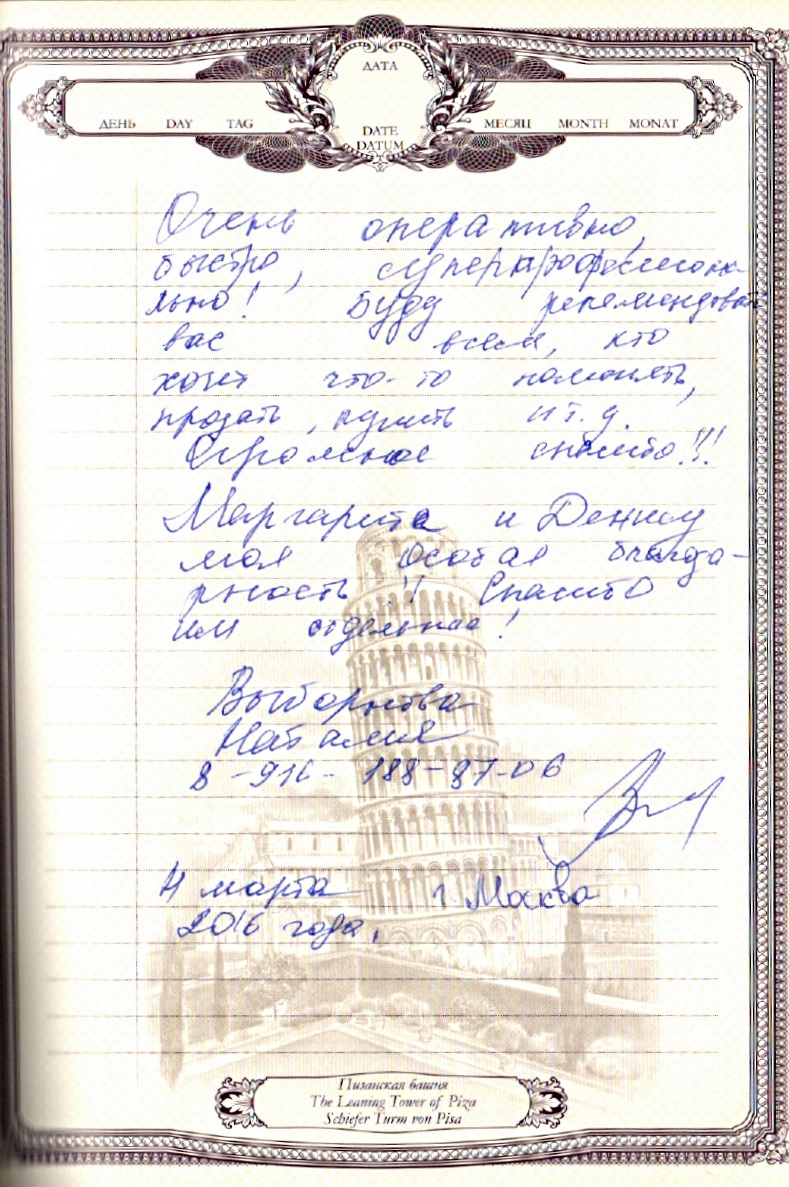 ДАТА
ДЕНЬ DAY TAG
DATE
DATUM
МЕСЯЦ MONTH MONAT
Очень оперативно,
быстро, суперпрофессиона-
льно! Буду рекомендовать
вас всем, кто
хочет что-то поменять,
продать, купить и т.д.
Огромное спасибо!!!
Маргарите и Денису
моя особая благода-
рность!! Спасибо
им отдельное!
Выборнова
Наталия
8-916-188-87-06
4 марта г. Москва
2016 года.
Пизанская башня
The Leaning Tower of Piza
Schiefer Turm von Pisa